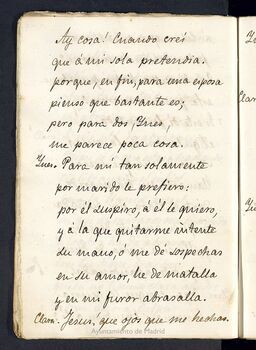 Ay cosa! Cuando creí
que á mi sola pretendia.
porque, en fin, para una esposa
pienso que bastante es;
pero para dos, Ynes,
me parece poca cosa.
Ynes. Para mi tan solamente
por marido le prefiero:
por él suspiro, á él le quiero,
y á la que quitarme intente
su mano, ó me dé sospechas
en su amor, he de matalla
y en mi furor abrasalla.
Clara. Jesus, que ojos que me hechas.
Clar
Ayuntamiento de Madrid